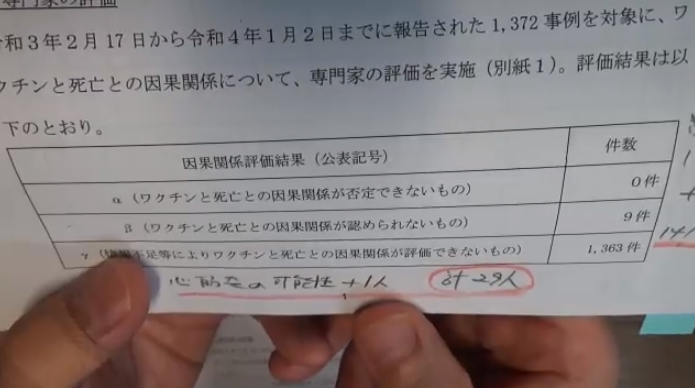 専門家の評価
令和3年2月17日から令和4年1月2日までに報告された1,372事例を対象に、ワ
クチンと死亡との因果関係について、専門家の評価を実施（別紙1）。評価結果は以
下のとおり。
因果関係評価結果（公表記号） 件数
α（ワクチンと死亡との因果関係が否定できないもの） 0件
β（ワクチンと死亡との因果関係が認められないもの） 9件
γ（情報不足等によりワクチンと死亡との因果関係が評価できないもの） 1,363件
の可能性 +1人 計29人
1